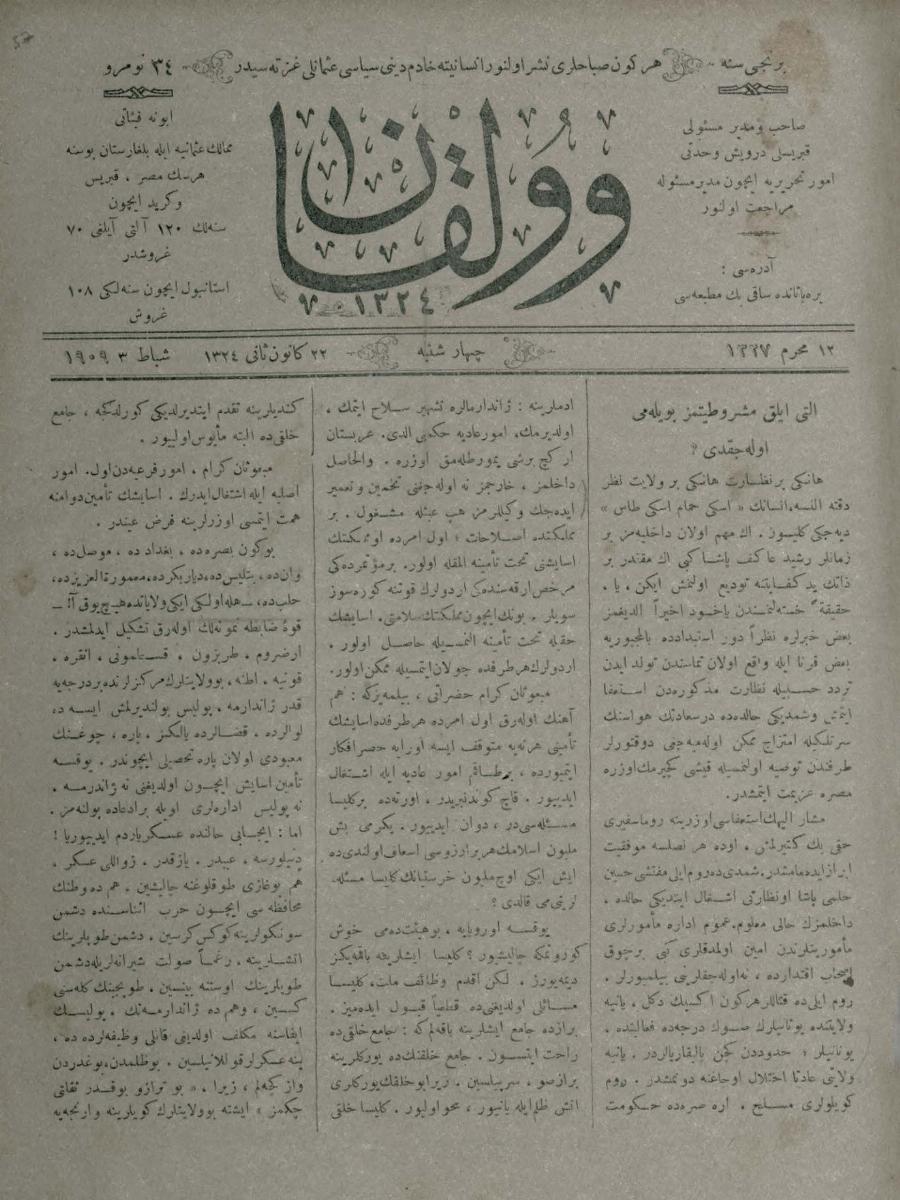 برنجی سنه
هركون صباحلری نشر اولنور انسانیته خادم دینی سیاسی عثمانلی غزته‌سیدر
٣٤ نومرو
صاحب ومدیر مسئولی
قبریسلی درویش وحدتی
امور تحریریه ایچون مدیر مسئوله
مراجعت اولنور
آدره‌سی :
ساقی بك مطبعه‌سی
وولقان
١٣٢٤
ابونه فیئاتی
ممالك عثمانیه ایله بلغارستان بوسنه
هرسك مصر ، قبریس
وكرید ایچون
سنه‌لك ١٢٠ آلتی آیلغی ٧٠
غروشدر
استانبول ایچون سنه‌لكی ١٠٨
غروش
١٢ محرم ١٣٢٧
چهار شنبه
٢٢ كانون ثانی ١٣٢٤
شباط ٣ ١٩٠٩
التی ایلق مشروطیتمز بویله‌می
اوله‌جقدی ؟
هانكی بر نظارت هانكی بر ولایت نظر
دقته النسه، انسانك « اسكی حمام اسكی طاس »
دیه‌جكی كلیسور. اك مهم اولان داخلیه‌مز بر
زمانلر رشید عاكف پاشا كبی اك مقتدر بر
ذاتك ید كفایتنه تودیع اولنمش ایكن ، یا .
حقیقةً خسته‌لغندن یاخود اخیراً الدیغمز
بعض خبرلره نظراً دور استبدادده بالمجبوریه
بعض قرنا ایله واقع اولان تماسندن تولد ایدن
تردد حسیله نظارت مذكوره‌دن استعفا
ایتمش وشمدیكی حالده‌ده درسعادتك هواسنك
سرتلكیله امتزاج ممكن اوله‌میه‌جغی دوقتورلر
طرفندن توصیه اولنمسیله قیشی كچیرمك اوزره
مصره عزیمت ایتمشدر.
مشار الیهك استعفاسی اوزرینه روما سفیری
حقی بك كتیرلمش ، اوده هر نصلسه موفقیت
ابراز ایده‌مامشدر. شمدی‌ده روم ایلی مفتشی حسین
حلمی پاشا او نظارتی اشغال ایتدیكی حالده ،
داخلمزك حالی معلوم. عموم اداره مأمورلری
مأموریتلرندن امین اولمدقلری كبی برچوق
اصحاب اقتدارده ، نه اوله‌جقلرینی بیلمیورلر .
روم ایلی‌ده قتللر هركون اكسیك دكل ، یانیه
ولایتنده یونانیلرك صوك درجه‌ده فعالیتنده .
یونانیلر ؛ حدوددن كچن بالیقاریالردر . یانیه
ولایتی عادتا اختلال اوجاغنه دونمشدر. روم
كویلولری مسلح . اره صره‌ده حكومت
ادملرینه : ژاندارمالره تشهیر سلاح ایتمك ،
اولدیرمك، امور عادیه حكمنی الدی. عربستان
ار كچ برشی یومورطله‌مق اوزره . والحاصل
داخلمز ، خارجمز نه اوله‌جغنی تخمین وتعبیر
ایده‌جك وكیللرمز هپ عبثله مشغول . بر
مملكتده اصلاحات ؛ اول امرده او مملكتك
اسایشنی تحت تأمینه المقله اولور. بر مؤتمرده‌كی
مرخص ارقه‌سنده‌كی اردولرك قوتنه كوره سوز
سویلر . بونك ایچون مملكتك سلامتی. اسایشك
حقیله تحت تأمینه المسیله حاصل اولور ،
اردولرك هر طرفده جولان ایتمسیله ممكن اولور.
مبعوثان كرام حضراتی ، بیلمه‌یزكه : هم
آهنك اوله‌رق اول امرده هر طرفده اسایشك
تأمینی هر نه‌یه متوقف ایسه اورایه حصر افكار
ایتمیورده ، بر طاقم امور عادیه ایله اشتغال
ایدیور . قاچ كوندنبریدر ، اورته‌ده بر كلیسا
مسئله‌سی‌در ، دوان ایدیور . یكرمی بش
ملیون اسلامك هر بر ارزوسی اسعاف اولندی‌ده
ایش ایكی اوچ ملیون خرستیانك كلیسا مسئله
لرینه‌می قالدی ؟
یوقسه اوروپایه ، بوهیئت‌ده‌می خوش
كورونمكه چالیشیور ؟ كلیسا ایشلرینه باقیله‌یكز
دیمه‌یورز . لكن اقدم وظائف ملت، كلیسا
مسائلی اولدیغنی‌ده قطعیاً قبول ایده‌میز .
برازده جامع ایشلرینه باقه‌لم‌كه : جامع خلقی‌ده
راحت ایتسون . جامع خلقنك‌ده یوركلرینه
براز صو ، سرپیلسین . زیرا بو خلقك یوركلری
اتش ظلم ایله یانیور ، محو اولیور . كلیسا خلقی
كندیلرینه تقدم ایتدیرلدیكی كورلدكجه ، جامع
خلقی‌ده البته مأیوس اولییور .
مبعوثان كرام ، امور فرعیه‌دن اول. امور
اصلیه ایله اشتغال ایدرك . اسایشك تأمین دوامنه
همت ایتمسی اوزرلرینه فرض عیندر .
بوكون بصره‌ده ، بغداد‌ده ، موصل‌ده ،
وان‌ده ، بتلیس‌ده، دیاربكرده، معمورة العزیزده،
حلب‌ده، ــ هله اولكی ایكی ولایاتده هیچ یوق آ! ــ
قوهٔ ضابطه نمونه‌لك اوله‌رق تشكیل ایدلمشدر .
ارضروم . طربزون . قسطمونی . انقره .
قونیه . اطنه ، بو ولایتلرك مركزلرنده بر درجه‌یه
قدر ژاندارمه . پولیس بولندیرلمش ایسه ده
لوالرده . قضالرده یالكز . پاره ، چوغنك
معبودی اولان پاره تحصیلی ایچوندر . یوقسه
تأمین اسایش ایچون اولدیغنی نه ژاندرمه .
نه پولیس اداره‌لری اویله بر ادعاده بولنه‌مز .
اما : ایجابی حالنده عسكر یاردم ایدییوریا !
دنیلورسه . عبثدر . یازقدر . زواللی عسكر .
هم بوغازی طوقلوغنه چالیشین . هم ده وطنك
محافظه سی ایچون حرب اثناسنده دشمن
سونكولرینه كوكس كرسین . دشمن طوپلرینك
اتشلرینه . رغماً صولت شیرانه‌لریله دشمن
طوپلرینك اوستنه بینسین . طوپجینك كله‌سنی
كسسین ، وهم ده ژاندارمه‌نك . پولیسك
ایفاسنه مكلف اولدیغی قانلی وظیفه‌لرده ده ،
ینه عسكرلر قوللانیلسین . بوظلمدن، بوغدردن
واز كچه‌لم ، زیرا . « بو ترازو بوقدر ثقلتی
چكمز » ایشته بو ولایتلرك كویلرینه وارنجه‌یه